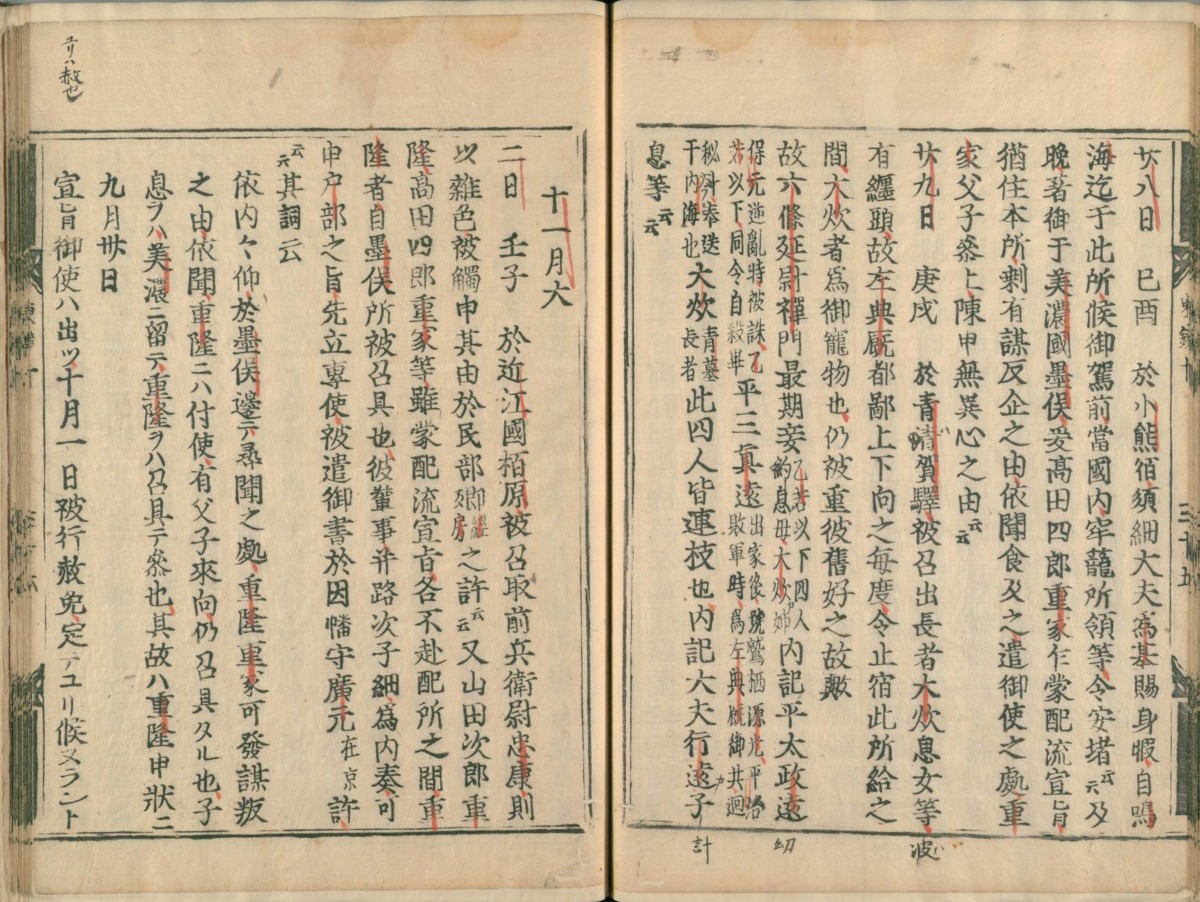 廿八日 已酉 於小熊宿須細大夫為基賜身暇自鳴
海迄于此所候御駕前當國内牢籠所領等令安堵云云及
晩著御于美濃國墨俣爰髙田四郎重家乍蒙配流宣旨
猶住本所剰有謀反企之由依聞食及之遣御使之處重
家父子参上陳申無異心之由云云
廿九日 庚戌 於青波賀驛被召出長者大炊息女等
有纏頭故左典厩都鄙上下向之毎度令止宿此所給之
間大炊者為御寵物也仍被重彼舊好之故歟
故六條廷尉禪門最期妾乙若以下四人幼息母大炊姉内記平太政遠
保元逆亂時被誅乙若以下同令自殺畢平三真遠出家後號鷲栖源光平治敗軍時為左典厩御共廻
秘計奉送于内海也大炊青墓長者此四人皆連枝也内記大夫行遠子
息等云云
波
幼
計
十一月大
二日 壬子 於近江國栢原被召取前兵衛尉忠康則
以雜色被觸申其由於民部卿經房之許云云又山田次郎重
隆髙田四郎重家等雖蒙配流宣旨各不赴配所之間重
隆者自墨俣所被召具也彼輩事并路次子細為内奏可
申戸部之旨先立專使被遣御書於因幡守廣元在京許
云云其詞云
依内々仰於墨俣邊テ尋聞之處重隆重家可發謀叛
之由依聞重隆ニハ付使有父子來向仍召具タル也子
息ヲハ美濃ニ留テ重隆ヲハ召具テ参也其故ハ重隆申狀ニ
九月卅日
宣旨御使ハ出ツ十月一日被行赦免定テユリ候ヌラント
ユリハ赦也